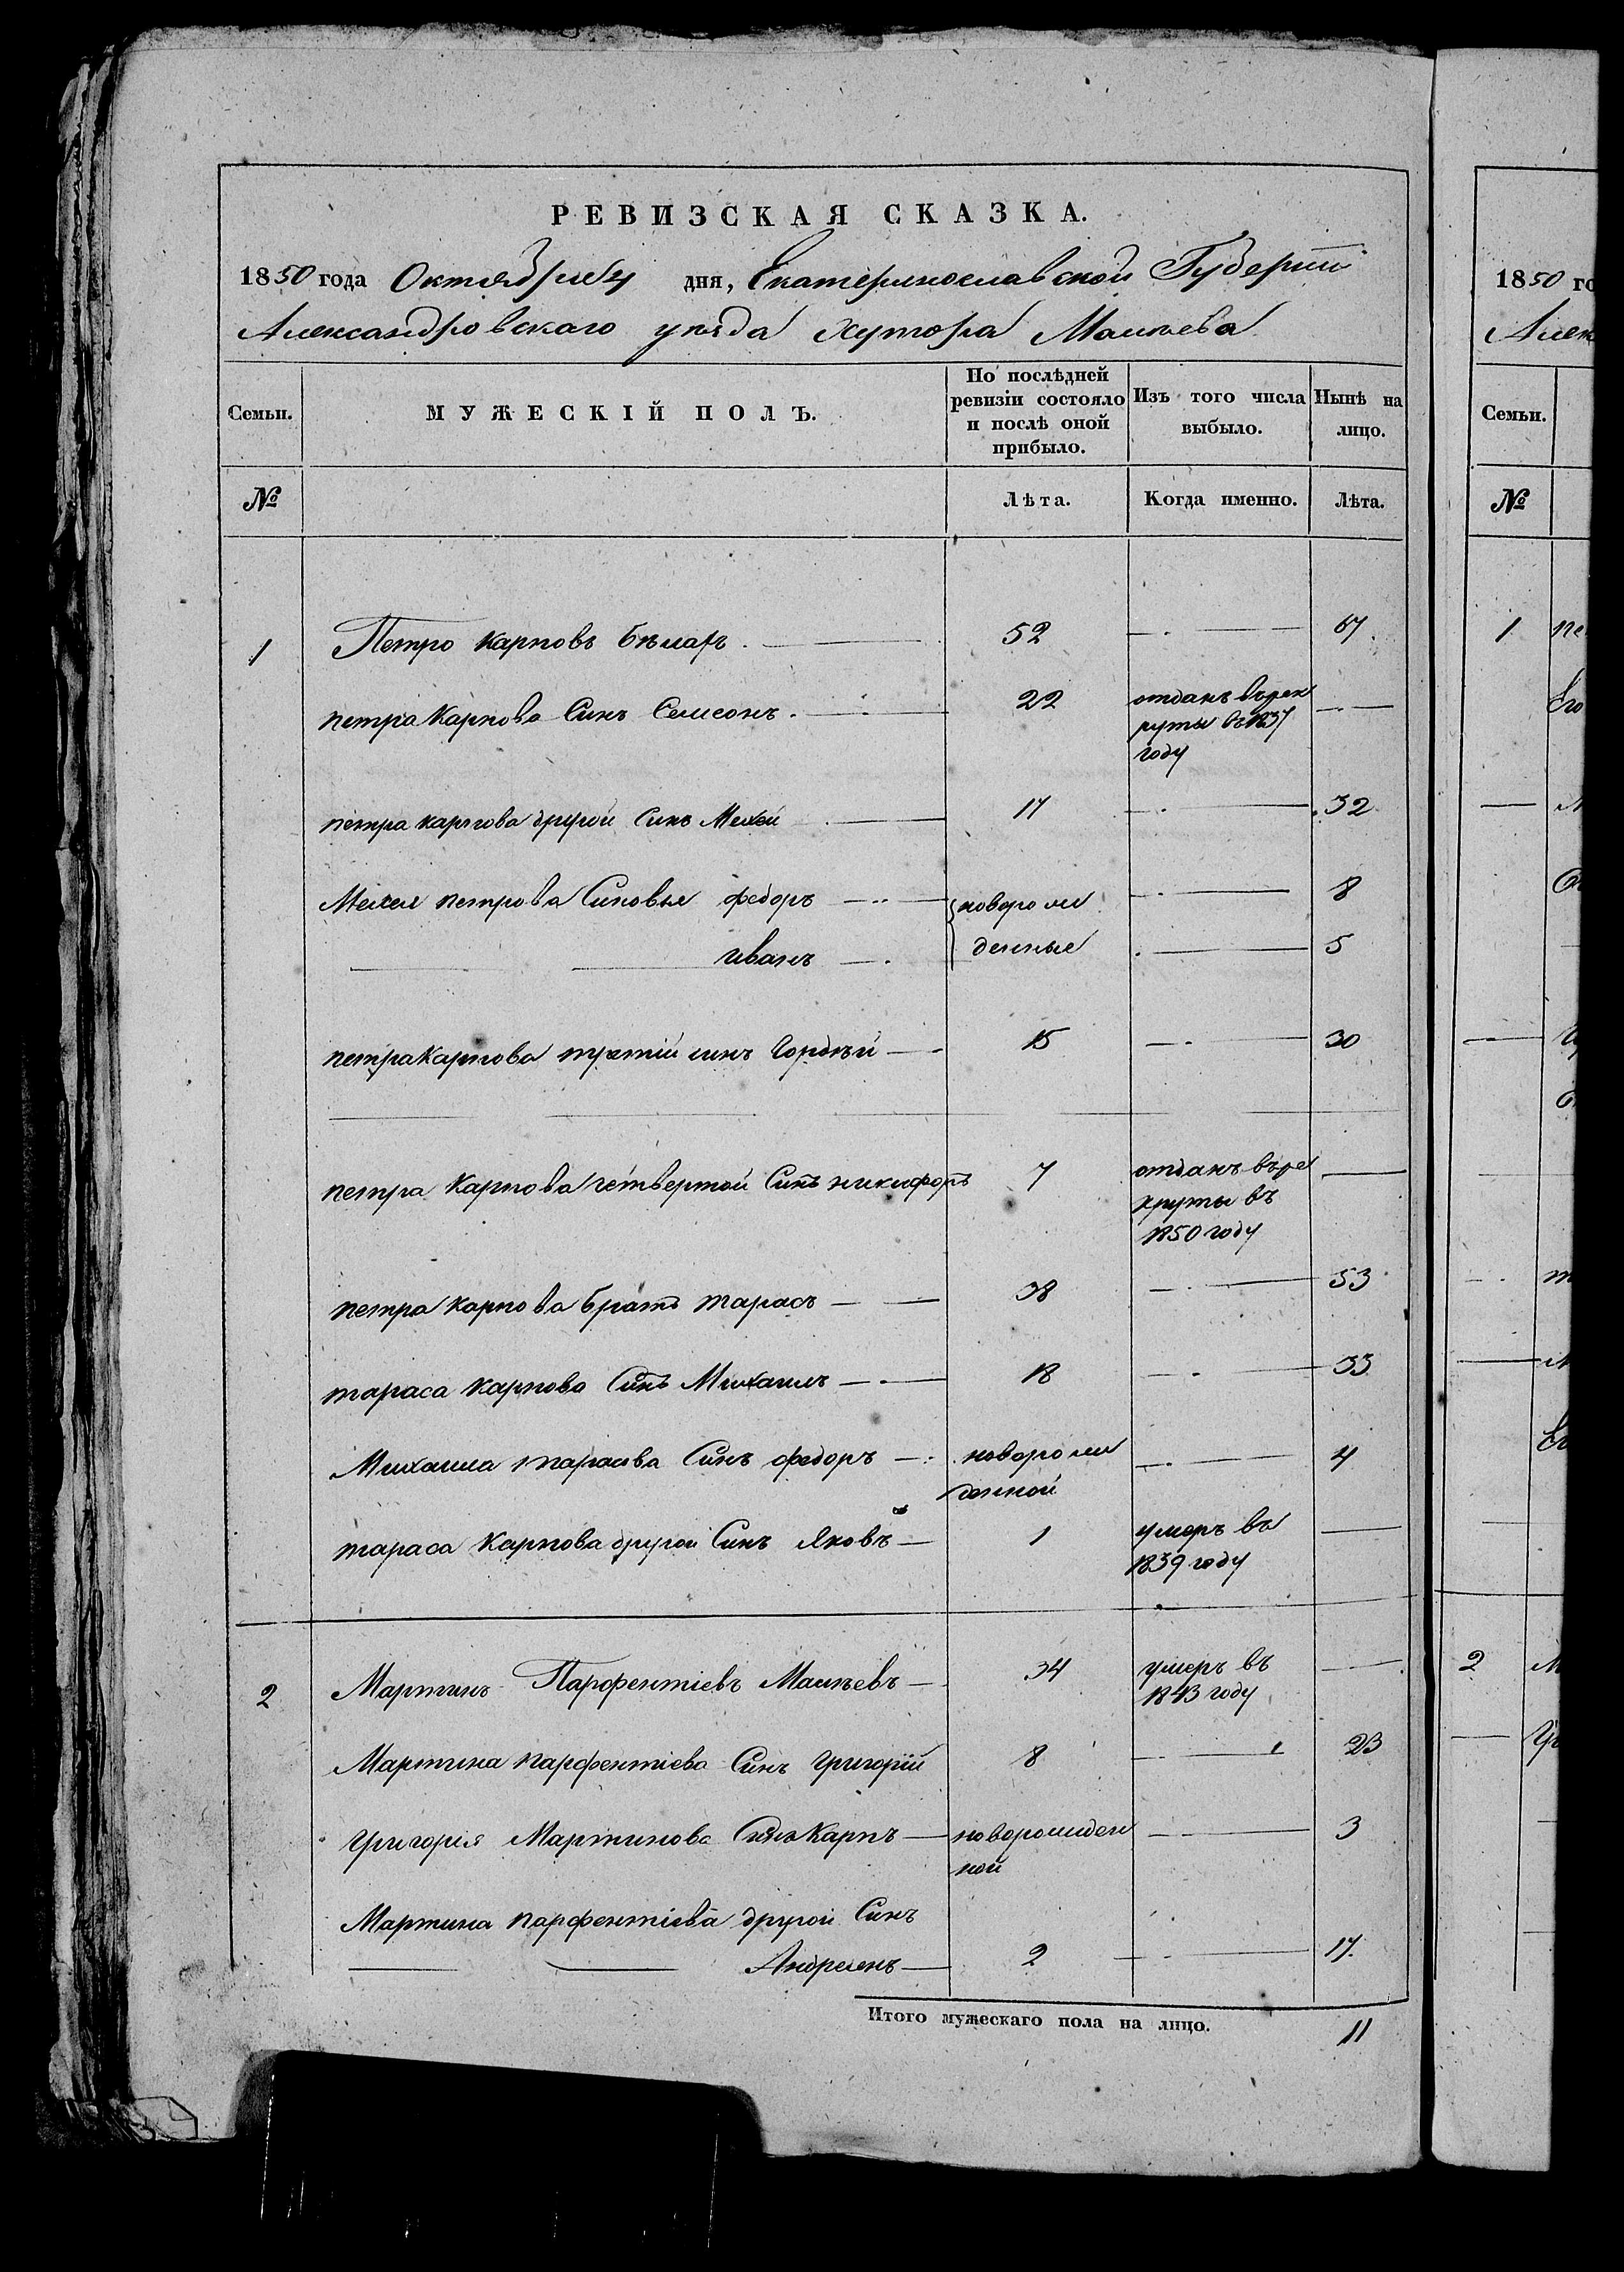 РЕВИЗСКАЯ СКАЗКА.
1850 года Октября 4 дня, Екатеринославской Губернии
Александровскаго уезда Хутора Мамаева
Семьи. МУЖЕСКІЙ ПОЛЪ. По послѣдней ревизіи состояло и послѣ оной прибыло. Изъ того числа выбыло. Нынѣ на лицо.
№ Лѣта. Когда именно. Лѣта.
1 Петро Карповъ 52 67
петра Карпова Синъ Семсонъ 22 отданъ въ рек
руты въ 1837
году
петра карпова другой Синъ Михей 17 32
Михея петрова Синовья федоръ новорож 8
иванъ денные 5
петра Карпова третій синъ Гордѣй 15 30
петра Карпова четвертой Синъ никифоръ 7 отданъ въ ре
круты въ
1850 году
петра Карпова братъ тарасъ 38 53
тараса Карпова Синъ Михаилъ 18 33
Михаила тарасова Синъ федоръ новорож 4
денной
тараса Карпова другой Синъ Яковъ 1 умеръ въ
1839 году
2 Мартинъ Парфентіевъ 34 умеръ въ
1843 году
Мартина парфентіева Синъ григорій 8 23
григорія Мартинова Синъ Карпъ новорожден 3
ной
Мартина парфентіева другой Синъ
2 17
Итого мужескаго пола на лицо. 11
1850 го
Алек
Семьи.
№
1
2